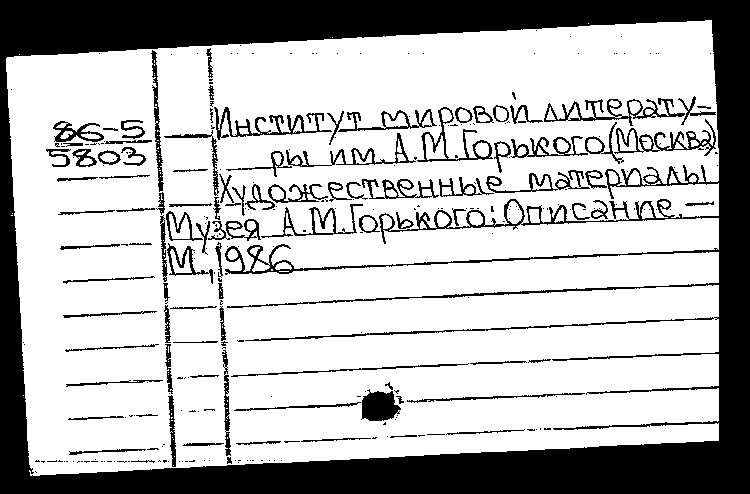 86-5
5803
Институт мировой литерату-
ры им. А.М.Горького (Москва)
Художественные материалы
Музея А.М.Горького: Описание. —
М., 1986